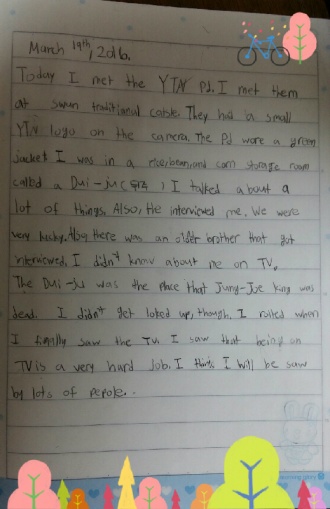 March 19th, 2016.
Today I met the YTN Pd. I met them
at swun traditional castle. They had a small
YTN logo on the camera. The Pd wore a green
jacket I was in a rice, bean, and corn storage room
called a Dui-ju ( ) I talked about a
lot of things. Also, He interviewed me. We were
very lucky. there was an older brother that got
interviewed. I didn't know about me on TV.
The Dui-ju was the place that Jung-Joe king was
dead. I didn't get loked up, though. I when
I finally saw the TV. I saw that being on
TV is a very hard job. I think I will be saw
by lots of pepole.